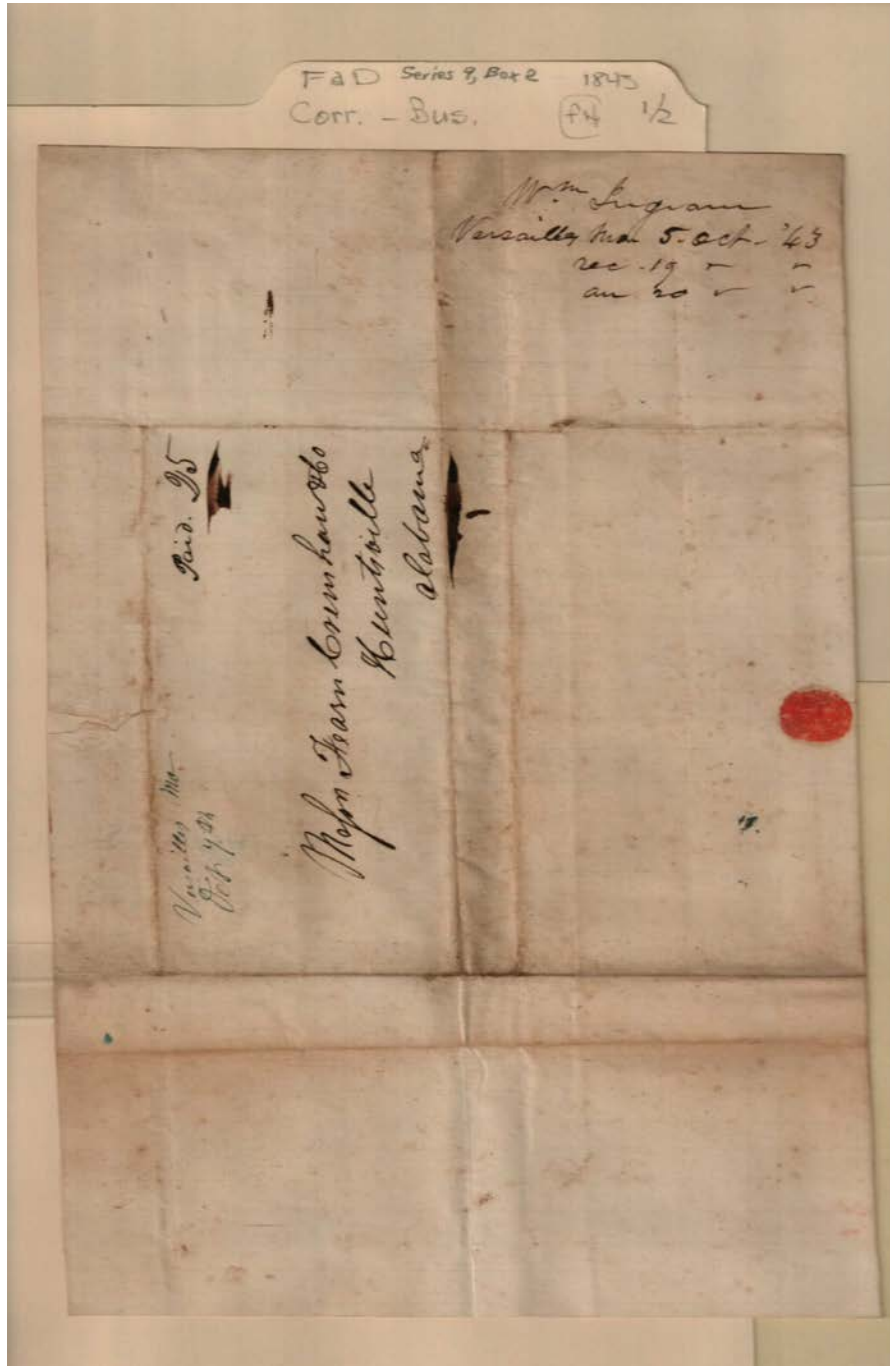 FaD Series 9, Box 2 1843
Corr. - Bus. FH 1/2
Wm Ingram
Versailles Mo 5. Oct - '43
rec - 19 " "
an 20 " "
Paid. 25
Versailles Mo.
Oct 7th
Messrs Fearn Crenshaw & Co
Huntsville
Alabama